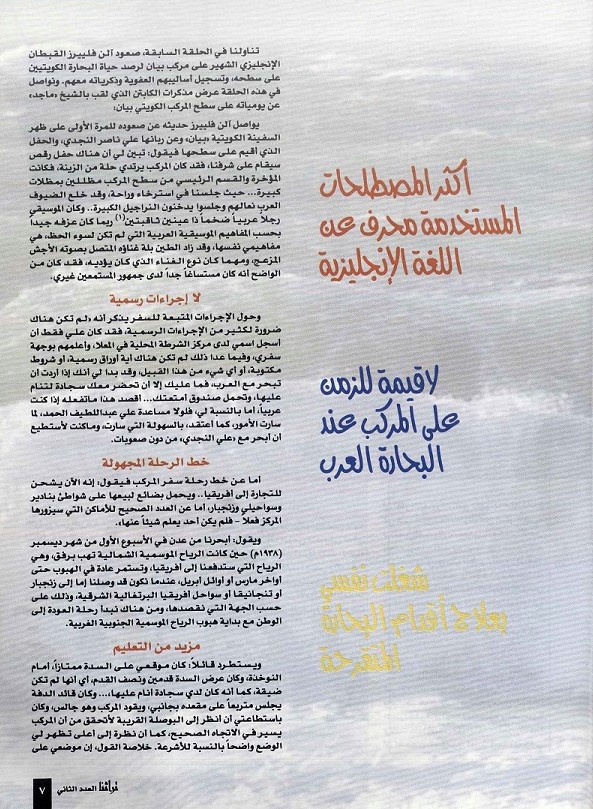 تناولنا في الحلقة السابقة، صعود آلن فلييرز القبطان
الإنجليزي الشهير على مركب بيان لرصد حياة البحارة الكويتيين
على سطحه، وتسجيل أساليبهم العفوية وذكرياته معهم. ونواصل
في هذه الحلقة عرض مذكرات الكابتن الذي لقب بالشيخ «ماجد»،
عن يومياته على سطح المركب الكويتي بيان:
يواصل آلن فلييرز حديثه عن صعوده للمرة الأولى على ظهر
السفينة الكويتية «بيان»، وعن ربانها علي ناصر النجدي، والحفل
الذي أقيم على سطحها فيقول: تبين لي أن هناك حفل رقص
سيقام على شرفنا، فقد كان المركب يرتدي حلة من الزينة، فكانت
المؤخرة والقسم الرئيسي من سطح المركب مظللين بمظلات
كبيرة... حيث جلسنا في استرخاء وراحة، وقد خلع الضيوف
العرب نعالهم وجلسوا يدخنون النراجيل الكبيرة.. وكان الموسيقي
رجلاً عربياً ضخماً ذا عينين ثاقبتين(١) ربما كان عزفه جيداً
بحسب المفاهيم الموسيقية العربية التي لم تكن لسوء الحظ، هي
مفاهيمي نفسها، وقد زاد الطين بلة غناؤه المتصل بصوته الأجش
المزعج، ومهما كان نوع الغناء الذي كان يؤديه، فقد كان من
الواضح أنه كان مستساغاً جداً لدى جمهور المستمعين غيري.
لا إجراءات رسمية
وحول الإجراءات المتبعة للسفر يذكر أنه «لم تكن هناك
ضرورة لكثير من الإجراءات الرسمية، فقد كان علي فقط أن
أسجل اسمي لدى مركز الشرطة المحلية في المعلا، وأعلمهم بوجهة
سفري، وفيما عدا ذلك لم تكن هناك أية أوراق رسمية، أو شروط
مكتوبة، أو أي شيء من هذا القبيل، وقد بدا لي أنك إذا أردت أن
تبحر مع العرب، فما عليك إلا أن تحضر معك سجادة لتنام
عليها، وتحمل صندوق أمتعتك... أقصد هذا ماتفعله إذا كنت
عربياً، أما بالنسبة لي، فلولا مساعدة علي عبداللطيف الحمد، لما
سارت الأمور، كما أعتقد، بالسهولة التي سارت، وماكنت لأستطيع
أن أبحر مع «علي النجدي»، من دون صعوبات.
خط الرحلة المجهولة
أما عن خط رحلة سفر المركب فيقول: إنه الآن يشحن
للتجارة إلى أفريقيا.. ويحمل بضائع لبيعها على شواطئ بنادير
وسواحيلي وزنجبار، أما عن العدد الصحيح للأماكن التي سيزورها
المركز فعلاً - فلم يكن أحد يعلم شيئاً عنها».
ويقول: أبحرنا من عدن في الأسبوع الأول من شهر ديسمبر
(١٩٣٨م) حين كانت الرياح الموسمية الشمالية تهب برفق، وهي
الرياح التي ستدفعنا إلى أفريقيا، وتستمر عادة في الهبوب حتى
أواخر مارس أو أوائل أبريل، عندما نكون قد وصلنا إما إلى زنجبار
أو تنجانيقا أو سواحل أفريقيا البرتغالية الشرقية، وذلك على
حسب الجهة التي نقصدها، ومن هناك نبدأ رحلة العودة إلى
الوطن مع بداية هبوب الرياح الموسمية الجنوبية الغربية.
مزيد من التعليم
ويستطرد قائلاً: كان موقعي على السدة ممتازاً، أمام
النوخذة، وكان عرض السدة قدمين ونصف القدم، أي أنها لم تكن
ضيقة، كما أنه كان لدي سجادة أنام عليها.... وكان قائد الدفة
يجلس متربعاً على مقعده بجانبي، ويقود المركب وهو جالس، وكان
باستطاعتي أن أنظر إلى البوصلة القريبة لأتحقق من أن المركب
يسير في الاتجاه الصحيح، كما أن نظرة إلى أعلى تظهر لي
الوضع واضحاً بالنسبة للأشرعة. خلاصة القول، إن موضعي على
أكثر المصطلحات
المستخدمة محرف عن
اللغة الإنجليزية
لا قيمة للزمن
على المركب عند
البحارة العرب
شغلت نفسي
بعلاج أقدام البحارة
المتقرحة
تراثنا العدد الثاني ٧